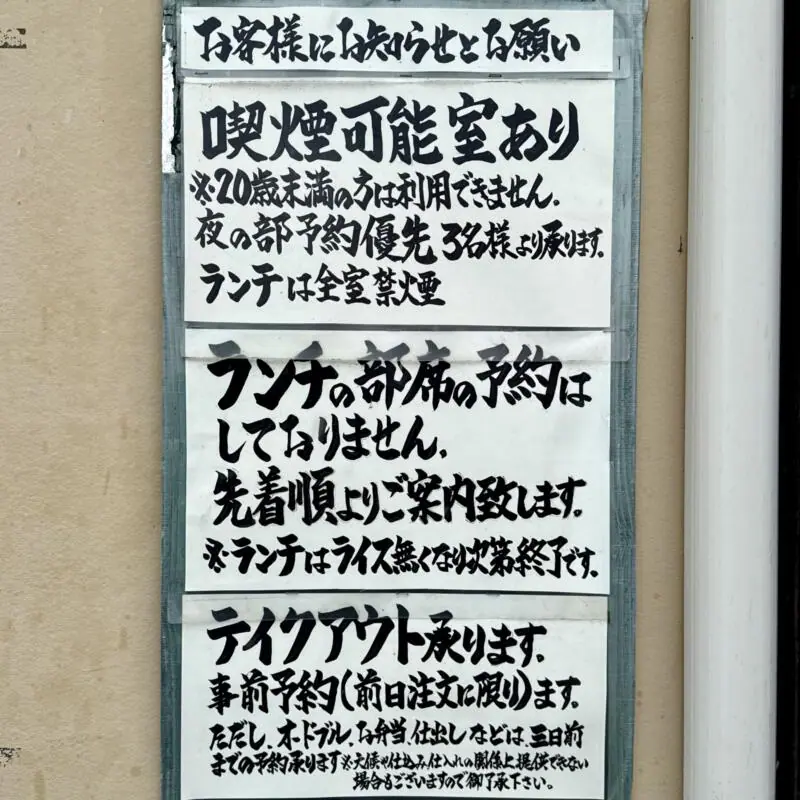 お客様にお知らせとお願い
喫煙可能室あり
※20歳未満の方は利用できません.
夜の部予約優先 3名様より承ります.
ランチは全室禁煙
ランチの部席の予約は
しておりません.
先着順よりご案内致します.
※ランチはライス無くなり次第終了です.
テイクアウト承ります.
事前予約(前日注文に限り)ます.
ただし、オードブル、お弁当、仕出しなどは、三日前
までの予約承ります※天候や仕込み仕入れの関係上提供できない
場合もございますので御了承下さい。